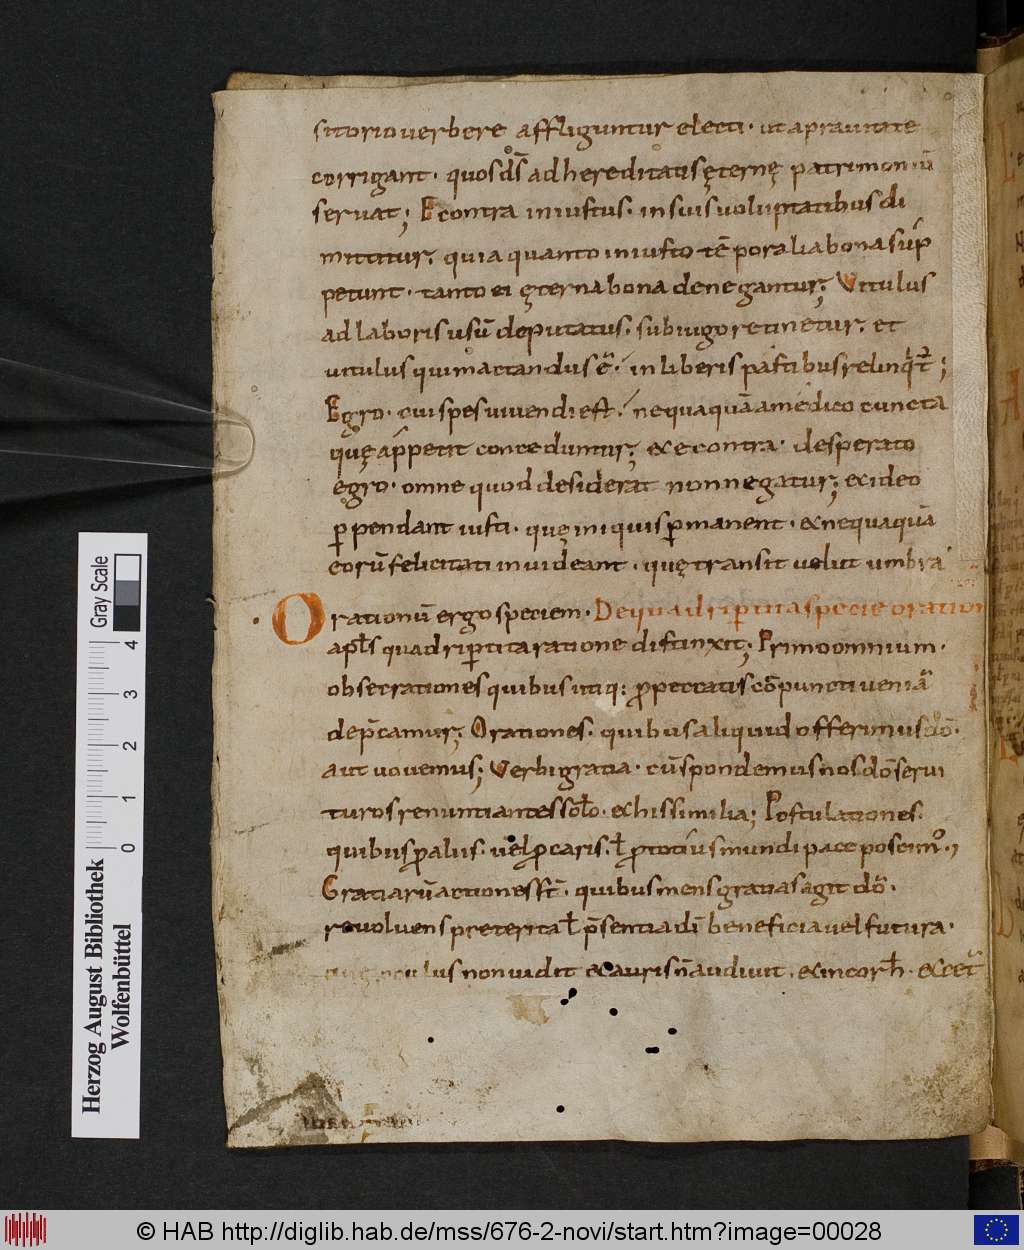 sitorio uerbere affliguntur electi · ut a prauitate
corrigant · quos d̄s ad hereditatis ęternę patrimoniū
seruat; Econtra iniustus · in suis uoluptatibus di
mittitur, quia quanto iniusto tēporalia bona sup
petunt · tanto ei ęterna bona denegantur; Vitulus
ad laboris usū deputatus, sub iugo retinetur, et
uitulus qui mactandus ē · in liberis pastibus relinq̄t̄;
Egro · cui spes uiuendi est, nequaquā a medico cuncta
quę appetit conceduntur; et econtra · desperato
egro · omne quod desiderat non negatur; et ideo
ꝑpendant iusti · quę iniquis ꝑmanent · et nequaquā
eorū felicitati inuideant · quę transit uelut umbra
Orationū ergo speciem · De quadriꝑtita specie oration
apl̄s quadriꝑtita ratione distinxit; Primo omnium ·
obsecrationes quibus utiq: ꝓ peccatis cōpuncti ueniā
dep̄camur; Orationes · quibus aliquid offerimus dō ·
aut uouemus; Verbi gratia · cū spondemus nos dō serui
turos renuntiantes sc̄lo · et his similia; Postulationes ·
quibus ꝓ aliis · uel ꝓ caris · ł ꝓ totius mundi pace poscim᷒ ·,
Gratiarū actiones st̄ · quibus mens gratias agit dō ·
reuoluens preterita ł p̄sentia dī beneficia uel futura ·
quę oculus non uidit et auris n̄ audiuit · et in cor h · et cet̄
Gray Scale
0 1 2 3 4
Herzog August Bibliothek
Wolfenbüttel
© HAB http://diglib.hab.de/mss/676-2-novi/start.htm?image=00028